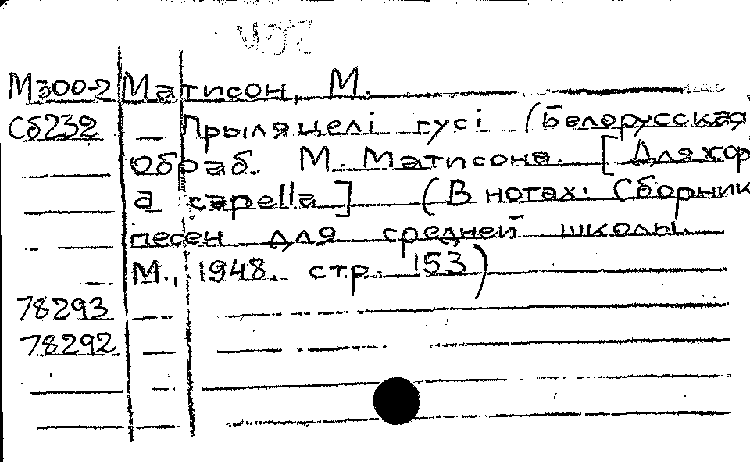 М300-2 Матисон, М.
Сб232 — Прыляцелі гусі (Белорусская)
Обраб. М. Матисона. [Для хор
а capella] (В нотах: Сборник
песен для средней школы.
М., 1948. стр. 153)
78293
78292